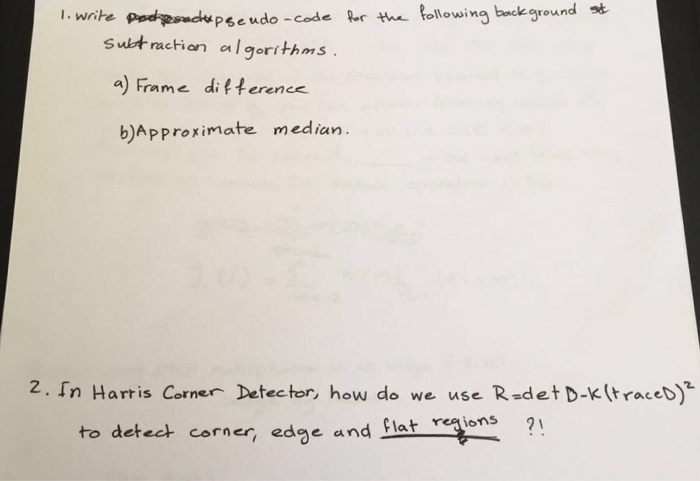 1. Write pseudo-code for the following background
Subtraction algorithms.
a) Frame difference
b) Approximate median.
2. In Harris Corner Detector, how do we use R=det D-K(traceD)²
to detect corner, edge and flat regions ?!